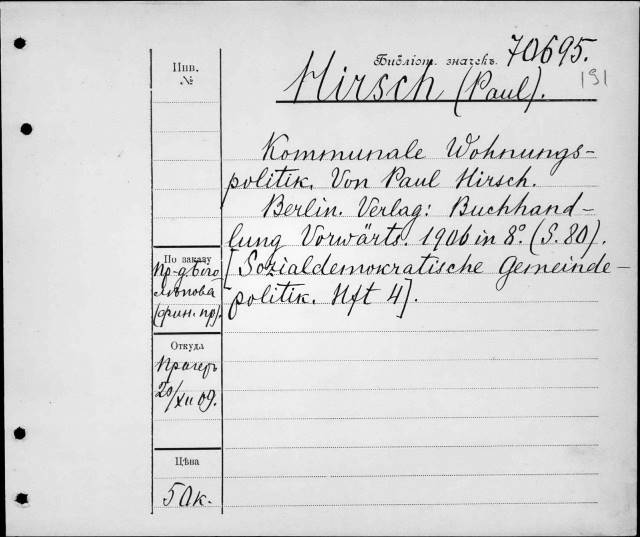 Инв.
№
Библіот. значекъ. 70695.
191
Hirsch (Paul).
Kommunale Wohnungs-
politik. Von Paul Hirsch.
Berlin. Verlag: Buchhand-
lung Vorwärts. 1906 in 8°. (S. 80).
[Sozialdemokratische Gemeinde-
politik. Hft 4].
По заказу
пр-д. Бѣго
лѣпова
(фин. пр).
Откуда
Прагеръ
20/XII 09.
Цѣна
50к.